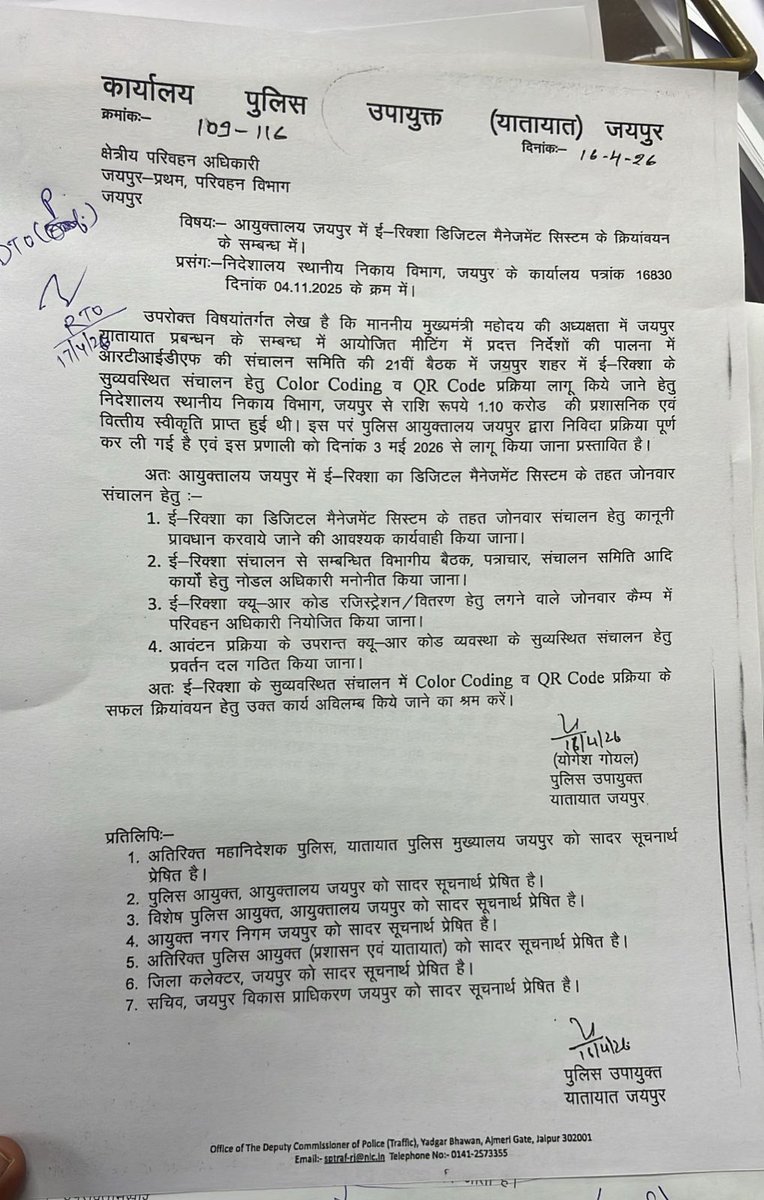 कार्यालय पुलिस उपायुक्त (यातायात) जयपुर
क्रमांकः– 109-116
दिनांकः– 16-4-26
क्षेत्रीय परिवहन अधिकारी
जयपुर–प्रथम, परिवहन विभाग
जयपुर
DTO
RTO
17/4/26
विषयः– आयुक्तालय जयपुर में ई–रिक्शा डिजिटल मैनेजमेंट सिस्टम के क्रियांवयन
के सम्बन्ध में।
प्रसंगः–निदेशालय स्थानीय निकाय विभाग, जयपुर के कार्यालय पत्रांक 16830
दिनांक 04.11.2025 के क्रम में।
उपरोक्त विषयांतर्गत लेख है कि माननीय मुख्यमंत्री महोदय की अध्यक्षता में जयपुर
यातायात प्रबन्धन के सम्बन्ध में आयोजित मीटिंग में प्रदत्त निर्देशों की पालना में
आरटीआईडीएफ की संचालन समिति की 21वीं बैठक में जयपुर शहर में ई–रिक्शा के
सुव्यवस्थित संचालन हेतु Color Coding व QR Code प्रक्रिया लागू किये जाने हेतु
निदेशालय स्थानीय निकाय विभाग, जयपुर से राशि रूपये 1.10 करोड की प्रशासनिक एवं
वित्तीय स्वीकृति प्राप्त हुई थी। इस परं पुलिस आयुक्तालय जयपुर द्वारा निविदा प्रक्रिया पूर्ण
कर ली गई है एवं इस प्रणाली को दिनांक 3 मई 2026 से लागू किया जाना प्रस्तावित है।
अतः आयुक्तालय जयपुर में ई–रिक्शा का डिजिटल मैनेजमेंट सिस्टम के तहत जोनवार
संचालन हेतु :–
1. ई–रिक्शा का डिजिटल मैनेजमेंट सिस्टम के तहत जोनवार संचालन हेतु कानूनी
प्रावधान करवाये जाने की आवश्यक कार्यवाही किया जाना।
2. ई–रिक्शा संचालन से सम्बन्धित विभागीय बैठक, पत्राचार, संचालन समिति आदि
कार्यो हेतु नोडल अधिकारी मनोनीत किया जाना।
3. ई–रिक्शा क्यू–आर कोड रजिस्ट्रेशन/वितरण हेतु लगने वाले जोनवार कैम्प में
परिवहन अधिकारी नियोजित किया जाना।
4. आवंटन प्रक्रिया के उपरान्त क्यू–आर कोड व्यवस्था के सुव्यस्थित संचालन हेतु
प्रवर्तन दल गठित किया जाना।
अतः ई–रिक्शा के सुव्यवस्थित संचालन में Color Coding व QR Code प्रक्रिया के
सफल क्रियांवयन हेतु उक्त कार्य अविलम्ब किये जाने का श्रम करें।
16/4/26
(योगेश गोयल)
पुलिस उपायुक्त
यातायात जयपुर
प्रतिलिपिः–
1. अतिरिक्त महानिदेशक पुलिस, यातायात पुलिस मुख्यालय जयपुर को सादर सूचनार्थ
प्रेषित है।
2. पुलिस आयुक्त, आयुक्तालय जयपुर को सादर सूचनार्थ प्रेषित है।
3. विशेष पुलिस आयुक्त, आयुक्तालय जयपुर को सादर सूचनार्थ प्रेषित है।
4. आयुक्त नगर निगम जयपुर को सादर सूचनार्थ प्रेषित है।
5. अतिरिक्त पुलिस आयुक्त (प्रशासन एवं यातायात) को सादर सूचनार्थ प्रेषित है।
6. जिला कलेक्टर, जयपुर को सादर सूचनार्थ प्रेषित है।
7. सचिव, जयपुर विकास प्राधिकरण जयपुर को सादर सूचनार्थ प्रेषित है।
16/4/26
पुलिस उपायुक्त
यातायात जयपुर
Office of The Deputy Commissioner of Police (Traffic), Yadgar Bhawan, Ajmeri Gate, Jaipur 302001
Email:- sptraf-rj@nic.in Telephone No:- 0141-2573355